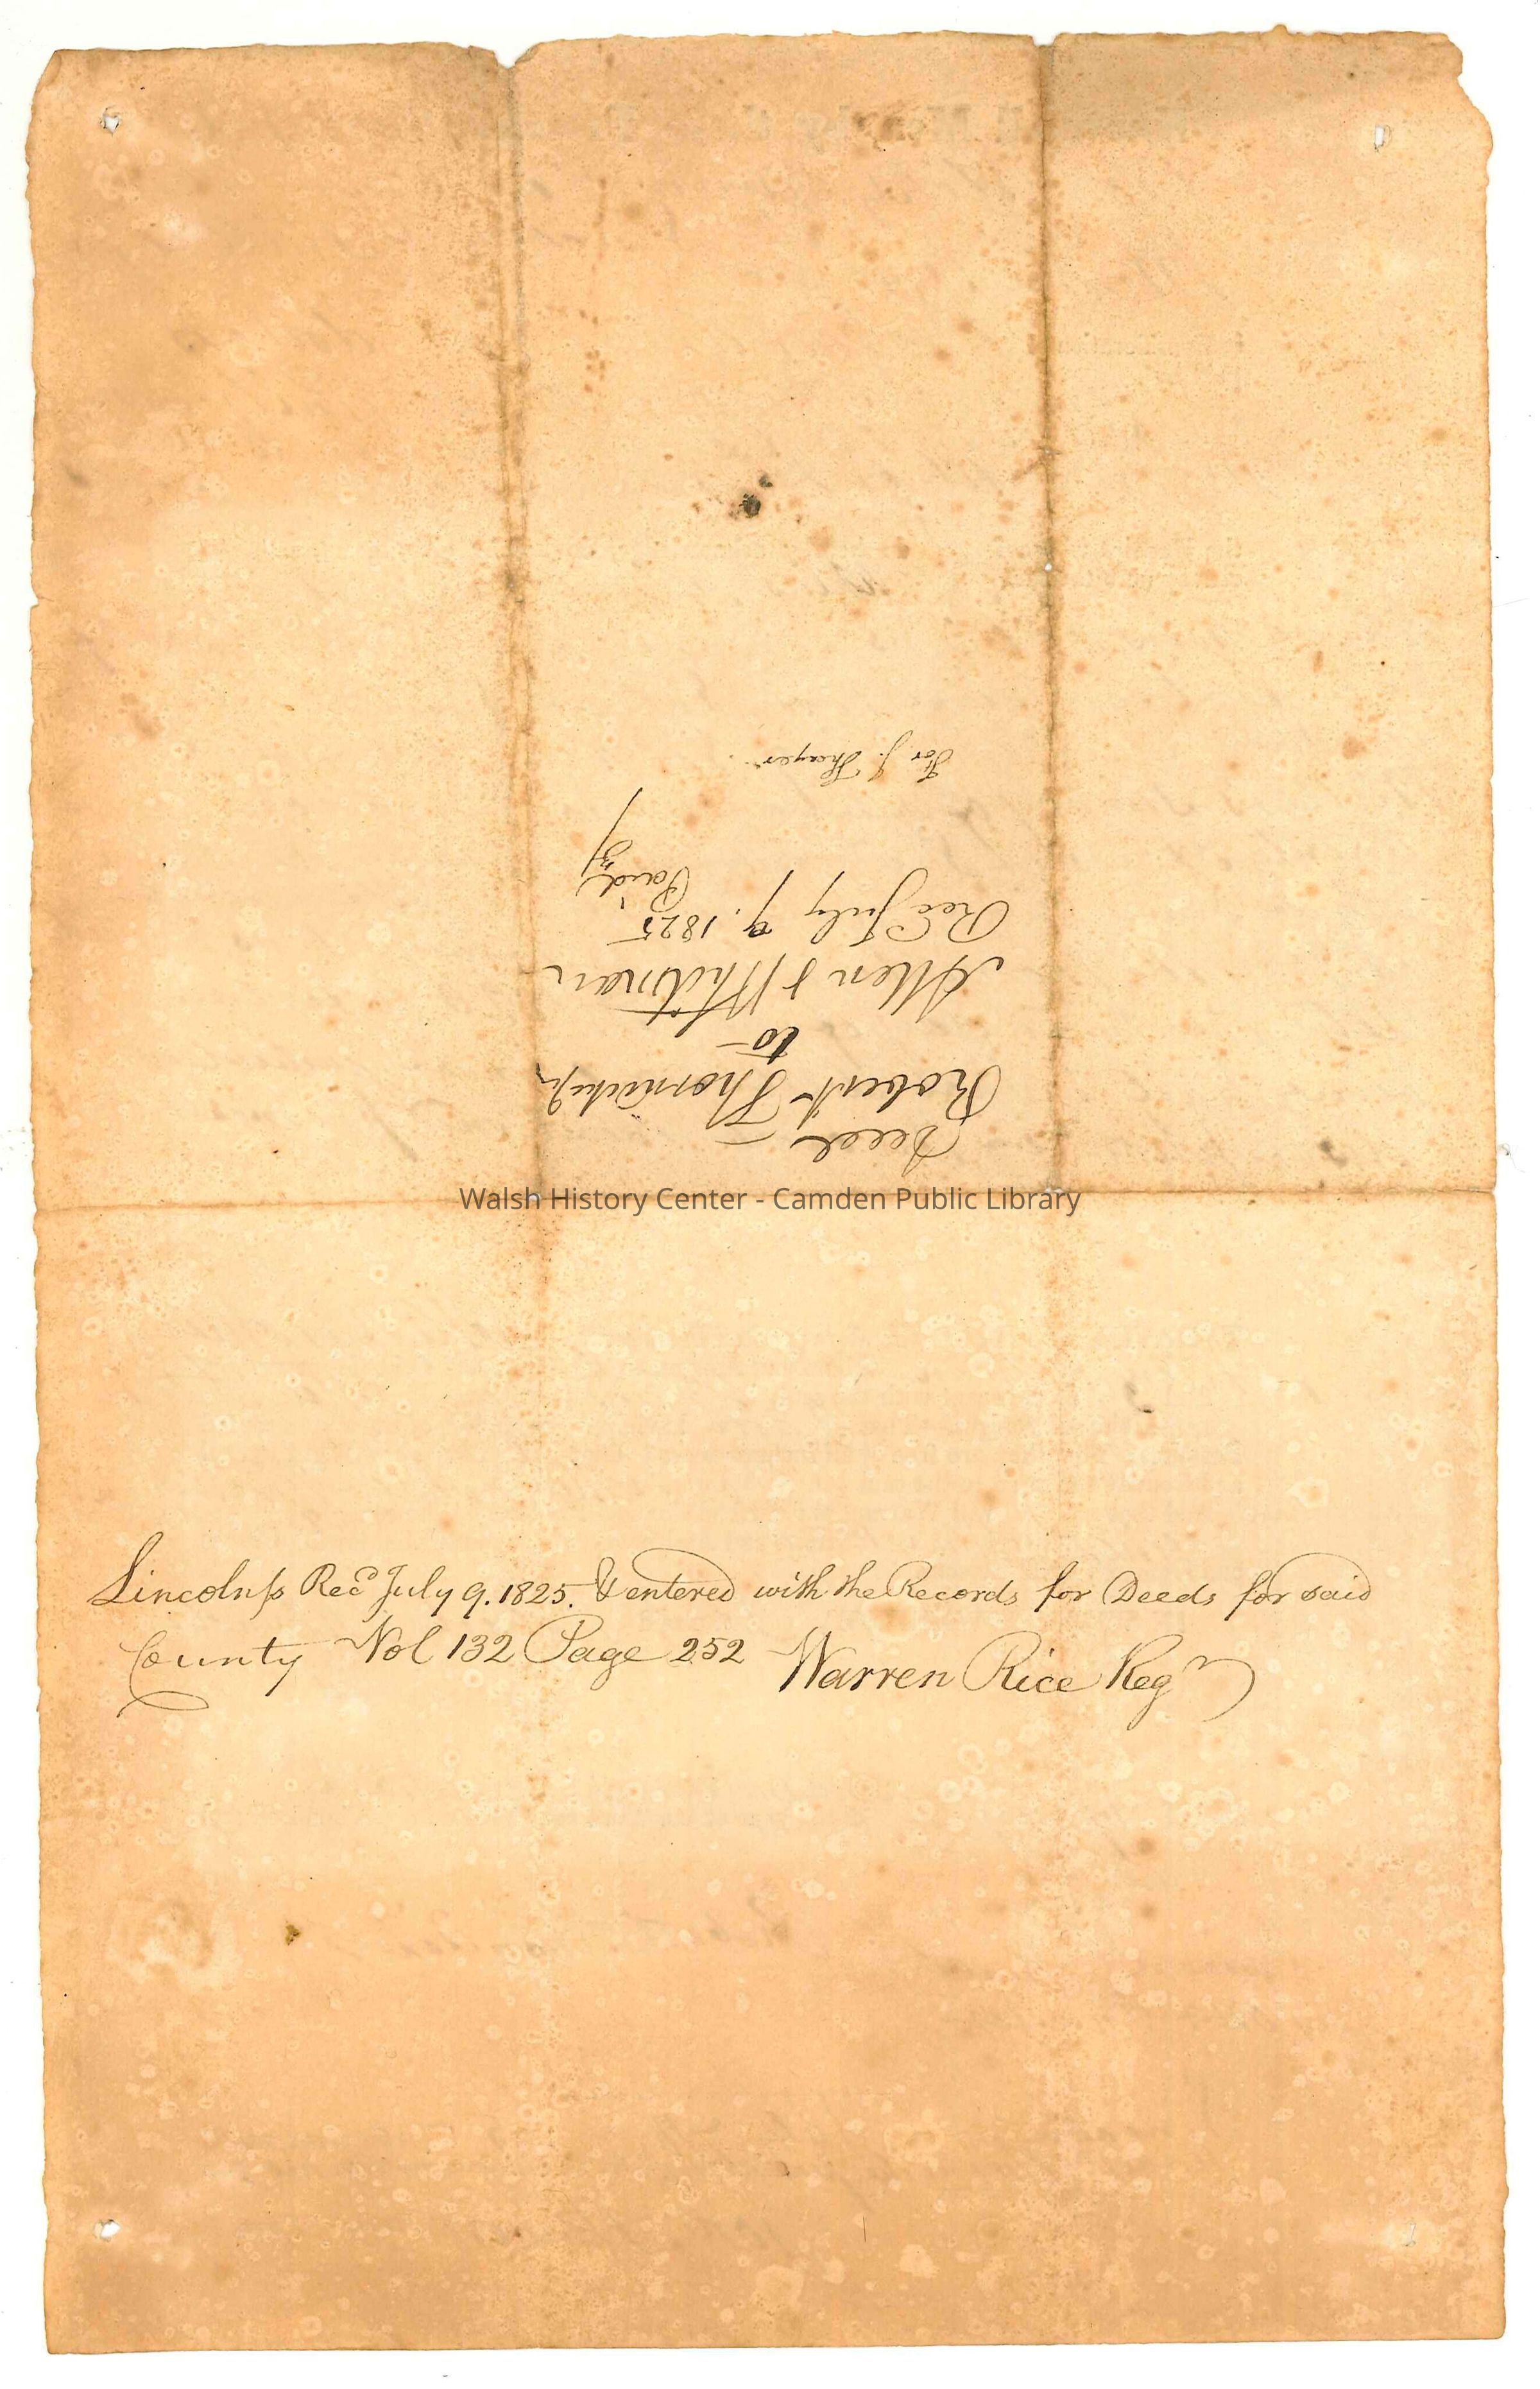 Deed
Robert Thorndike Jr
to
Allen & Whitman
Rec July 9. 1825
Paid
For J. Thayer
Walsh History Center - Camden Public Library
Lincoln ss Recd July 9. 1825. & entered with the Records for Deeds for said
County Vol 132 Page 252 Warren Rice Regr